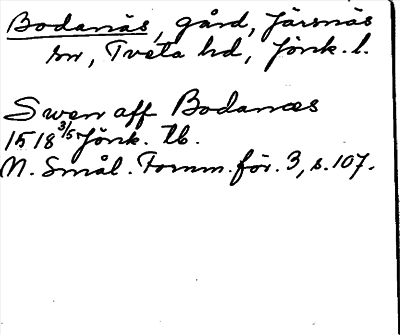 Bodanäs, gård, Järsnäs
sn, Tveta hd, Jönk. l.
Swen aff Bodanæs
1518 3/5 Jönk. tb.
N. Smål. Fornm.för. 3, s. 107.